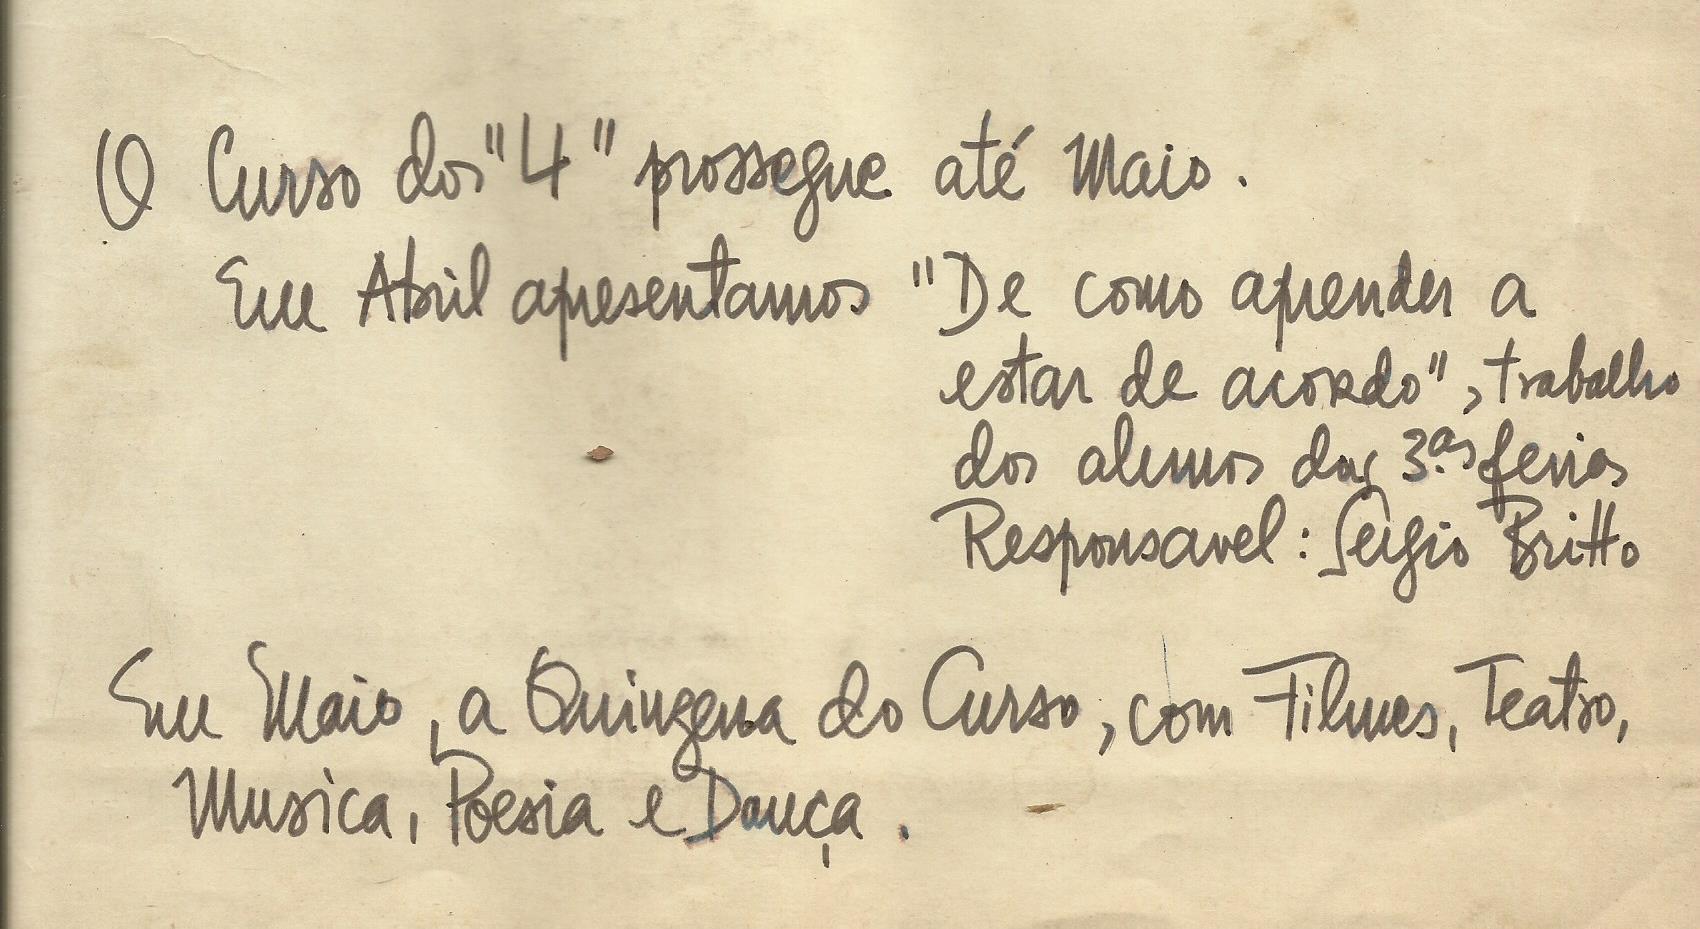 O Curso dos "4" prossegue até Maio.
Em Abril apresentamos "De como aprender a
estar de acordo", trabalho
dos alunos das 3.as ferias
Responsavel: Sergio Britto
Em Maio, a Quinzena do Curso, com Filmes, Teatro,
Musica, Poesia e Dança.